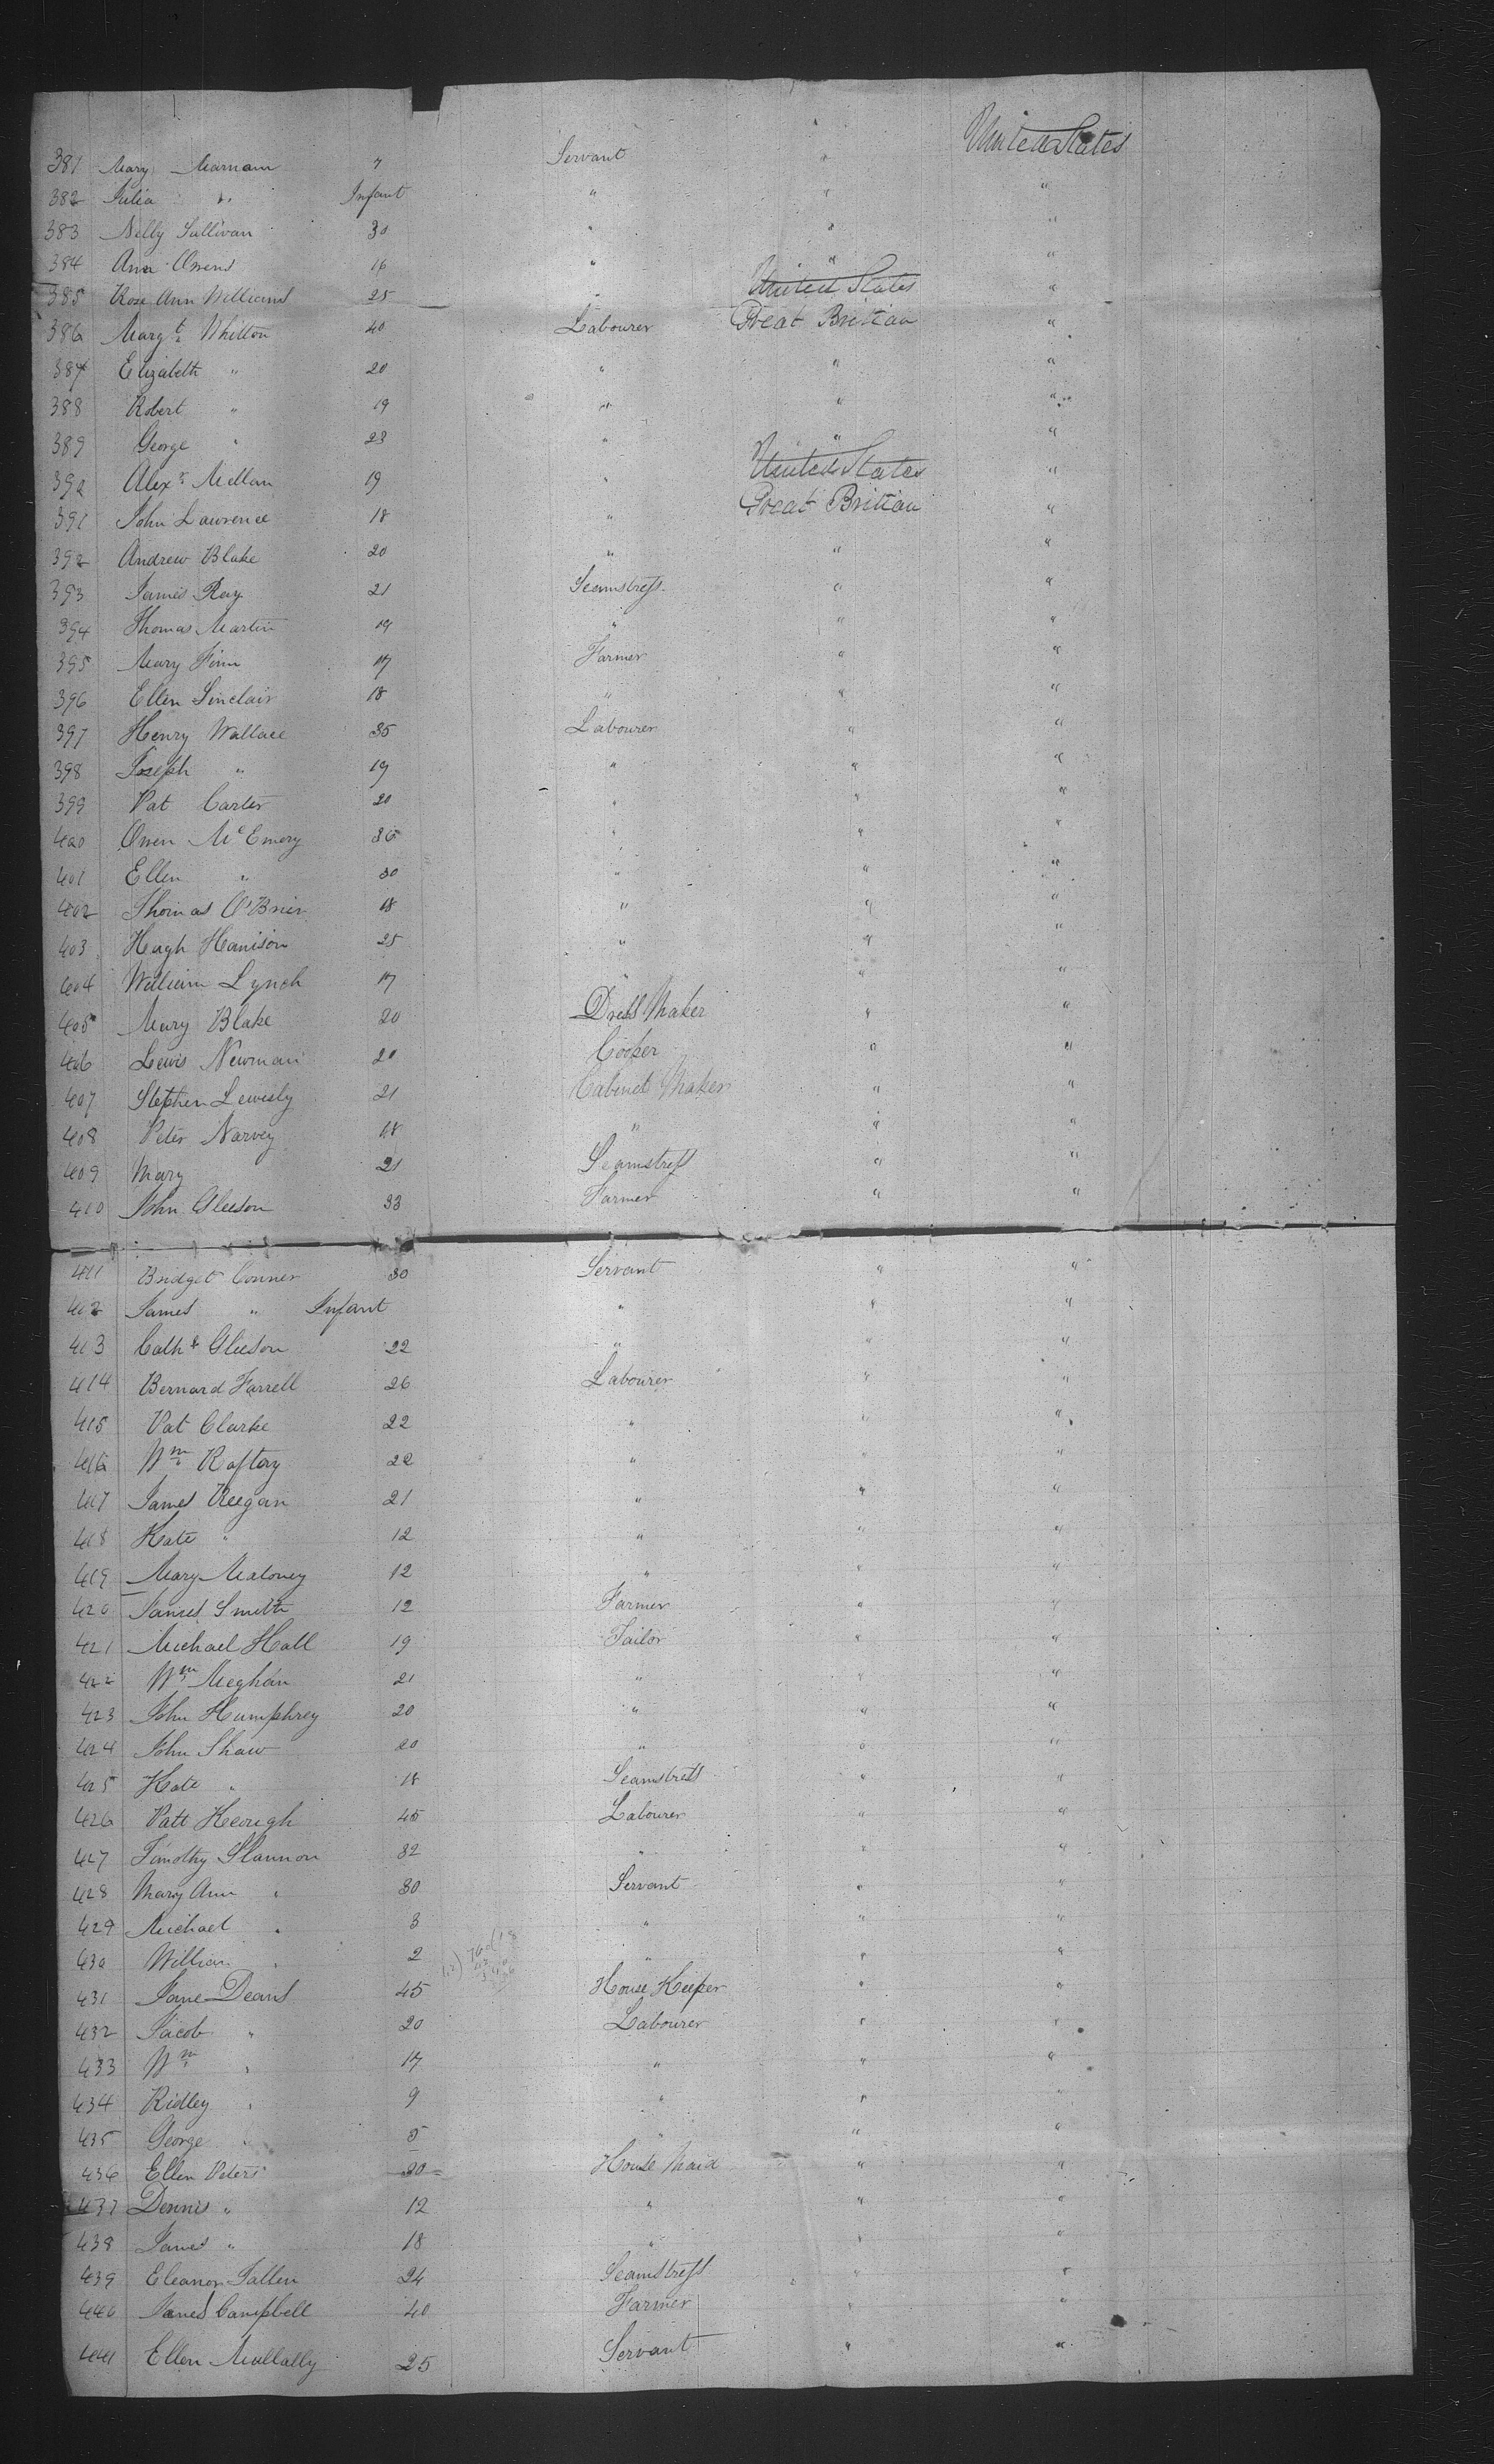 United States
381 Mary Marnam 7 Servant "
382 Julia " Infant " " "
383 Nelly Sullivan 30 " " "
384 Ann Owens 16 " " "
United States
385 Rose Ann Williams 25 " "
386 Margt Whitton 40 Labourer Great Brittan "
387 Elizabeth " 20 " " "
388 Robert " 19 " " "
389 George " 23 " " "
United States
392 Alexr Mellan 19 " "
391 John Lawrence 18 " Great Brittan "
392 Andrew Blake 20 " " "
393 James Ray 21 Seamstress " "
394 Thomas Martin 19 " " "
395 Mary Finn 17 Farmer " "
396 Ellen Sinclair 18 " " "
397 Henry Wallace 35 Labourer " "
398 Joseph " 19 " " "
399 Pat Carter 20 " " "
400 Owen McEmery 36 " " "
401 Ellen " 30 " " "
402 Thomas O'Brien 18 " " "
403 Hugh Harrison 25 " " "
404 William Lynch 17 " " "
405 Mary Blake 20 Dress Maker " "
406 Lewis Newman 20 Cooper " "
407 Stephen 21 Cabinet Maker " "
408 Peter Narvey 18 " " "
409 Mary 21 Seamstress " "
410 John Gleeson 33 Farmer " "
411 Bridget Conner 30 Servant " "
402 James " Infant " " "
413 Cathe Gleeson 22 " " "
414 Bernard Farrell 26 Labourer " "
415 Pat Clarke 22 " " "
416 Wm Raftery 22 " " "
417 James Reegan 21 " " "
418 Kate " 12 " " "
419 Mary Maloney 12 " " "
420 James Smith 12 Farmer " "
421 Michael Hall 19 Tailor " "
422 Wm Meghan 21 " " "
423 John Humphrey 20 " " "
424 John Shaw 20 " " "
425 Kate " 18 Seamstress " "
426 Patt Keough 45 Labourer " "
427 Timothy Slannon 32 " " "
428 Mary Ann " 30 Servant " "
429 Michael " 3 " " "
430 William " 2 " " "
431 Jane Deans 45 House Keeper " "
432 Jacob " 20 Labourer " "
433 Wm " 17 " " "
434 Ridley " 9 " " "
435 George " 5 " " "
436 Ellen Peters 20 House Maid " "
437 Dennis " 12 " " "
438 James " 18 " " "
439 Eleanor Fallen 24 Seamstress " "
440 James Campbell 40 Farmer " "
441 Ellen Mullally 25 Servant " "